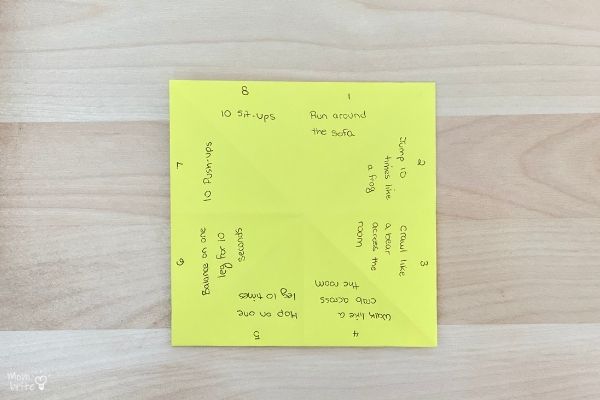 1
Run around
the sofa
2
Jump 10
times like
a frog
3
Crawl like
a bear
access the
room
4
Walk like a
crab across
the room
5
Hop on one
leg 10 times
6
Balance on one
leg for 10
seconds
7
10 Push-ups
8
10 Sit-ups
mom
brite